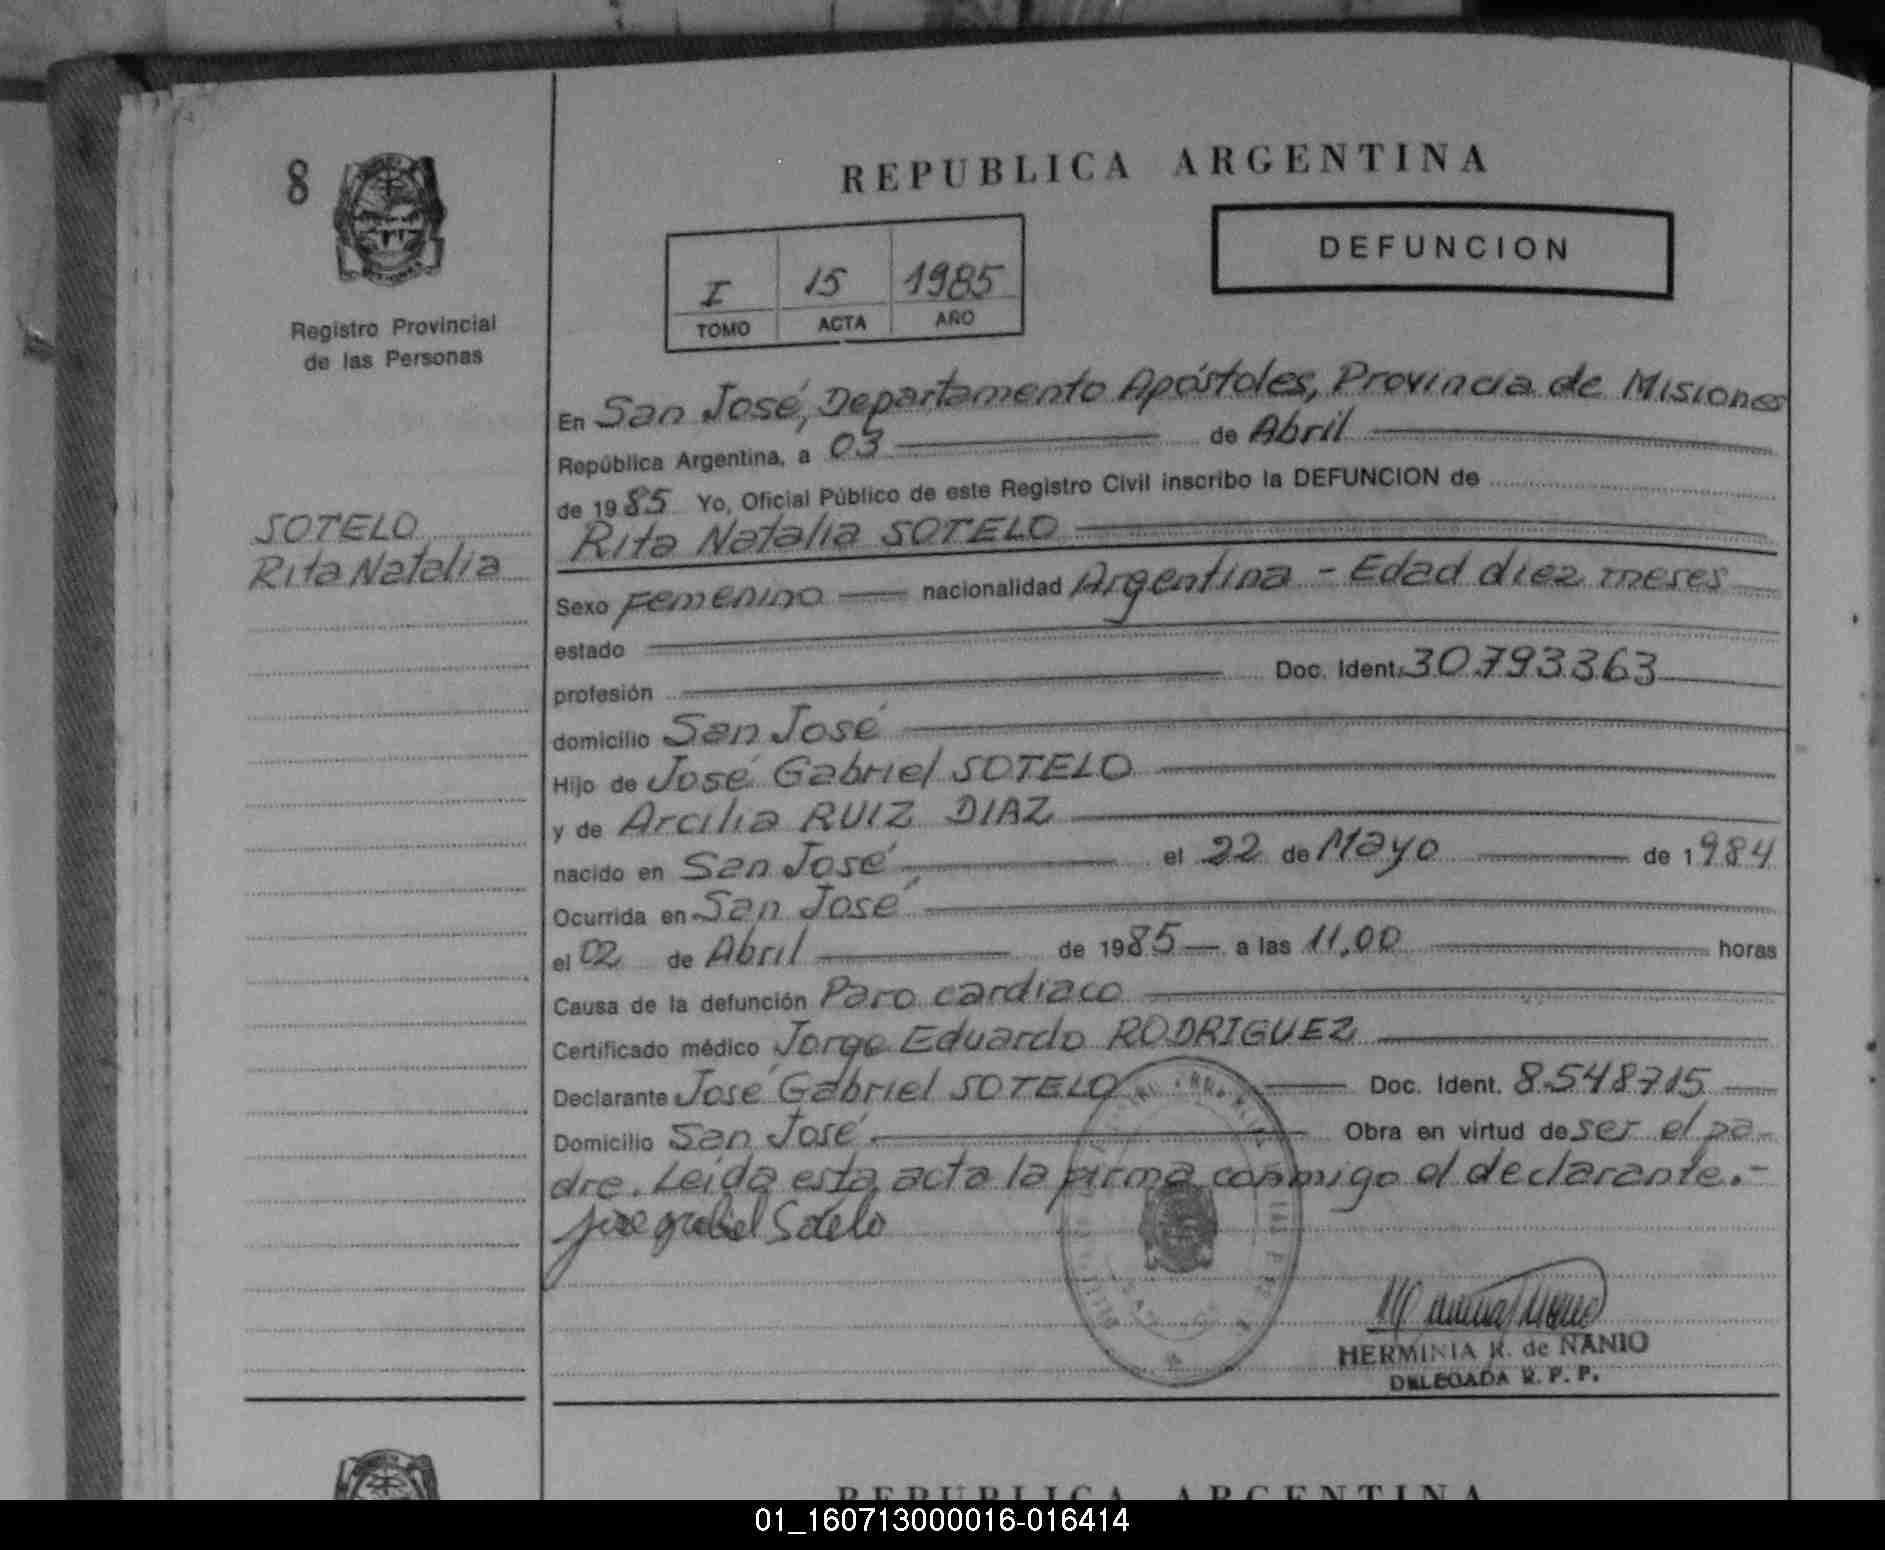 8
REPUBLICA ARGENTINA
DEFUNCION
I 15 1985
TOMO ACTA AÑO
Registro Provincial
de las Personas
SOTELO
Rita Natalia
En San José, Departamento Apóstoles, Provincia de Misiones
República Argentina, a 03 de Abril
de 1985 Yo, Oficial Público de este Registro Civil inscribo la DEFUNCION de
Rita Natalia SOTELO
Sexo Femenino nacionalidad Argentina - Edad diez meses
estado
profesión Doc. Ident. 30.793.363
domicilio San José
Hijo de José Gabriel SOTELO
y de Arcilia RUIZ DIAZ
nacido en San José el 22 de Mayo de 1984
Ocurrida en San José
el 02 de Abril de 1985 a las 11,00 horas
Causa de la defunción Paro cardiaco
Certificado médico Jorge Eduardo RODRIGUEZ
Declarante José Gabriel SOTELO Doc. Ident. 8.548.715
Domicilio San José Obra en virtud de ser el pa-
dre. Leida esta acta la firma conmigo el declarante.-
Jose gabriel Sotelo
HERMINIA R. de NANIO
DELEGADA R. P. P.
REPUBLICA ARGENTINA
01_160713000016-016414